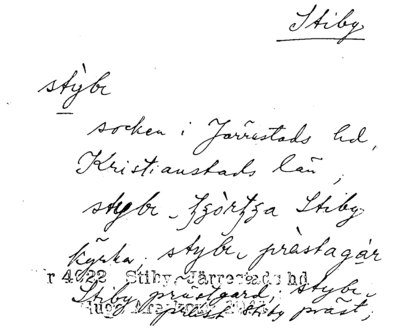 Stiby
stỳbe
socken i Järrestads hd,
Kristianstads län;
stybe ʒʒòrʒʒa Stiby
kyrka; stybe prästagår
r 4022 Stiby, Järrestads hd
Stiby prästgård; stybe
präst Stiby präst;